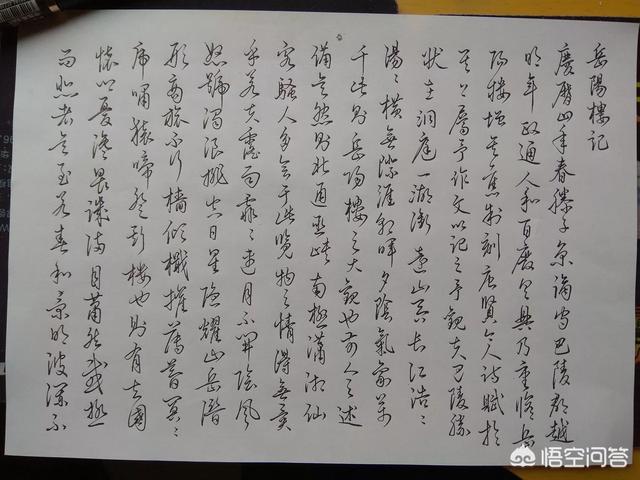 岳陽樓記
慶曆四年春滕子京謫守巴陵郡越
明年政通人和百廢具興乃重修岳
陽樓增其舊制刻唐賢今人詩賦於
其上屬予作文以記之予觀夫巴陵勝
狀在洞庭一湖銜遠山吞長江浩〻
湯〻橫無際涯朝暉夕陰氣象萬
千此則岳陽樓之大觀也前人之述
備矣然則北通巫峽南極瀟湘遷
客騷人多會于此覽物之情得無異
乎若夫霪雨霏〻連月不開陰風
怒號濁浪排空日星隱耀山岳潛
形商旅不行檣傾檝摧薄暮冥〻
虎嘯猿啼登斯樓也則有去國
懷鄉憂讒畏譏滿目蕭然感極
而悲者矣至若春和景明波瀾不
悟空问答